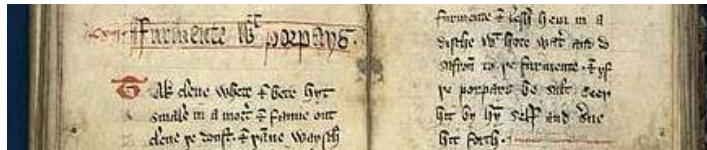 Furmente wt porpays.
Tak clene whete & bete hyt
smale in a morter & fanne out
clene þe doust. & þane waysch
furmente & lesh hem in a
dische wt hote water and do
safron to þe furmente. & yf
þe porpays be salt. seeþ
hit by hym self and serue
hit forth.